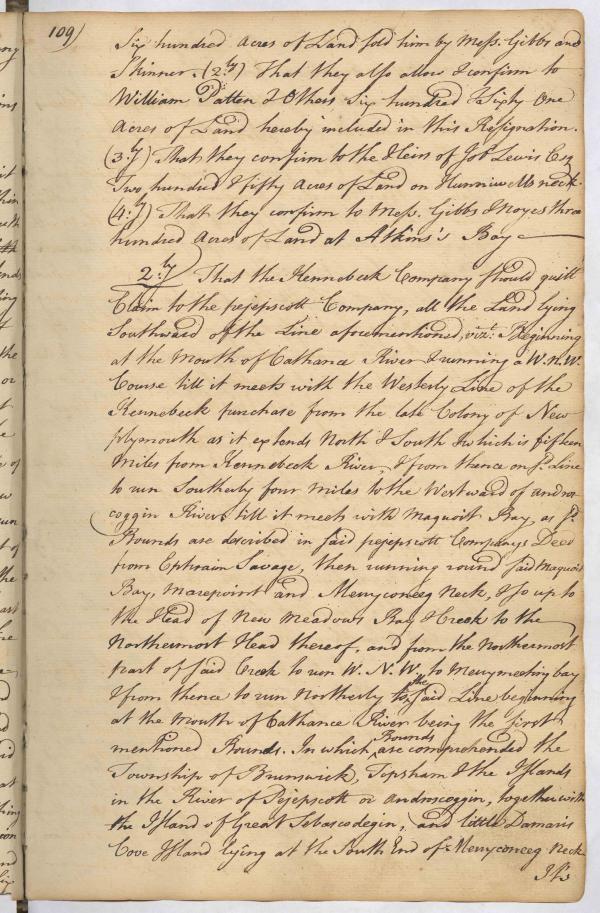 109)
Six hundred Acres of Land sold him by Mess. Gibbs and
Skinner. (2.ly) That they also allow & confirm to
William Patten & Others Six hundred & Sixty One
Acres of Land hereby included in this Resignation.
(3.ly) That they confirm to the Heirs of Job Lewis Esq
Two hundred & fifty Acres of Land on Neck.
(4:ly) That they confirm to Mess. Gibbs & Noyes three
hundred Acres of Land at Atkins's Bay
2.ly That the Kennebeck Company should quitt
Claim to the pejepscott Company, all the Land lying
Southward of the Line aforementioned, vizt. Beginning
at the Mouth of Cathance River & running a W.N.W.
Course till it meets with the Westerly Line of the
Kennebeck purchase from the late Colony of New
plymouth as it extends North & South & which is fifteen
Miles from Kennebeck River, & from thence on sd. Line
to run Southerly four Miles to the Westward of andros
coggin River till it meets with Maquoit Bay, as sd.
Bounds are described in said pejepscott Companys Deed
from Ephraim Savage, then running round said Maquoit
Bay, Marepoint and Merryconeeg Neck, & so up to
the Head of New Meadows Bay & Creek to the
Northermost Head thereof, and from the Northermost
part of said Creek to run W.N.W. to Merrymeeting bay
& from thence to run Northerly to the said Line beginning
at the Mouth of Cathance River being the first
mentioned Bounds. In which Bounds are comprehended the
Township of Brunswick, Topsham & the Islands
in the River of Pejepscott or Androscoggin, together with
the Island of Great Sebascodegin, and little Damaris
Cove Island lying at the South End of Merryconeeg Neck